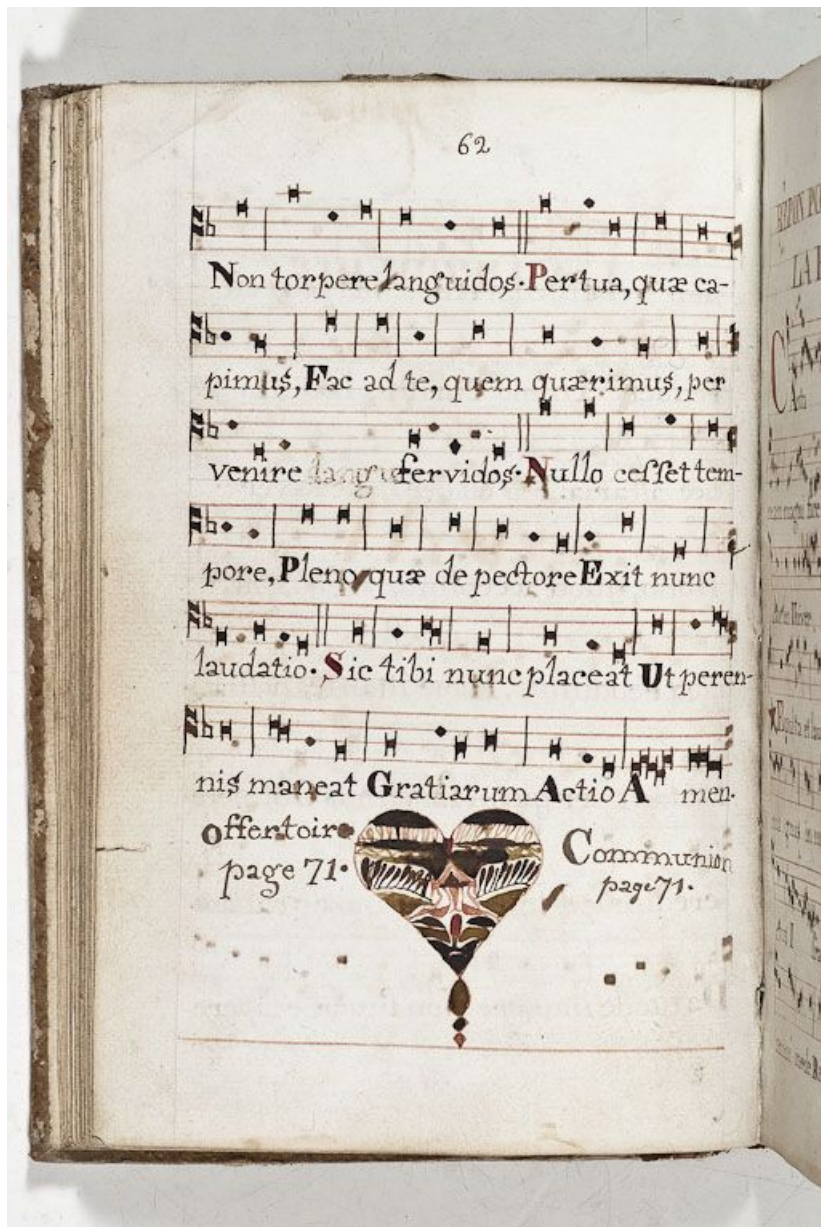 62
Non torpere languidos. Per tua, quæ ca-
pimus, Fac ad te, quem quærimus, per
venire langu fervidos. Nullo cesset tem-
pore, Pleno quæ de pectore Exit nunc
laudatio. Sic tibi nunc placeat Ut peren-
nis maneat Gratiarum Actio A men.
Offertoire
page 71.
Communion
page 71.
RÉPON